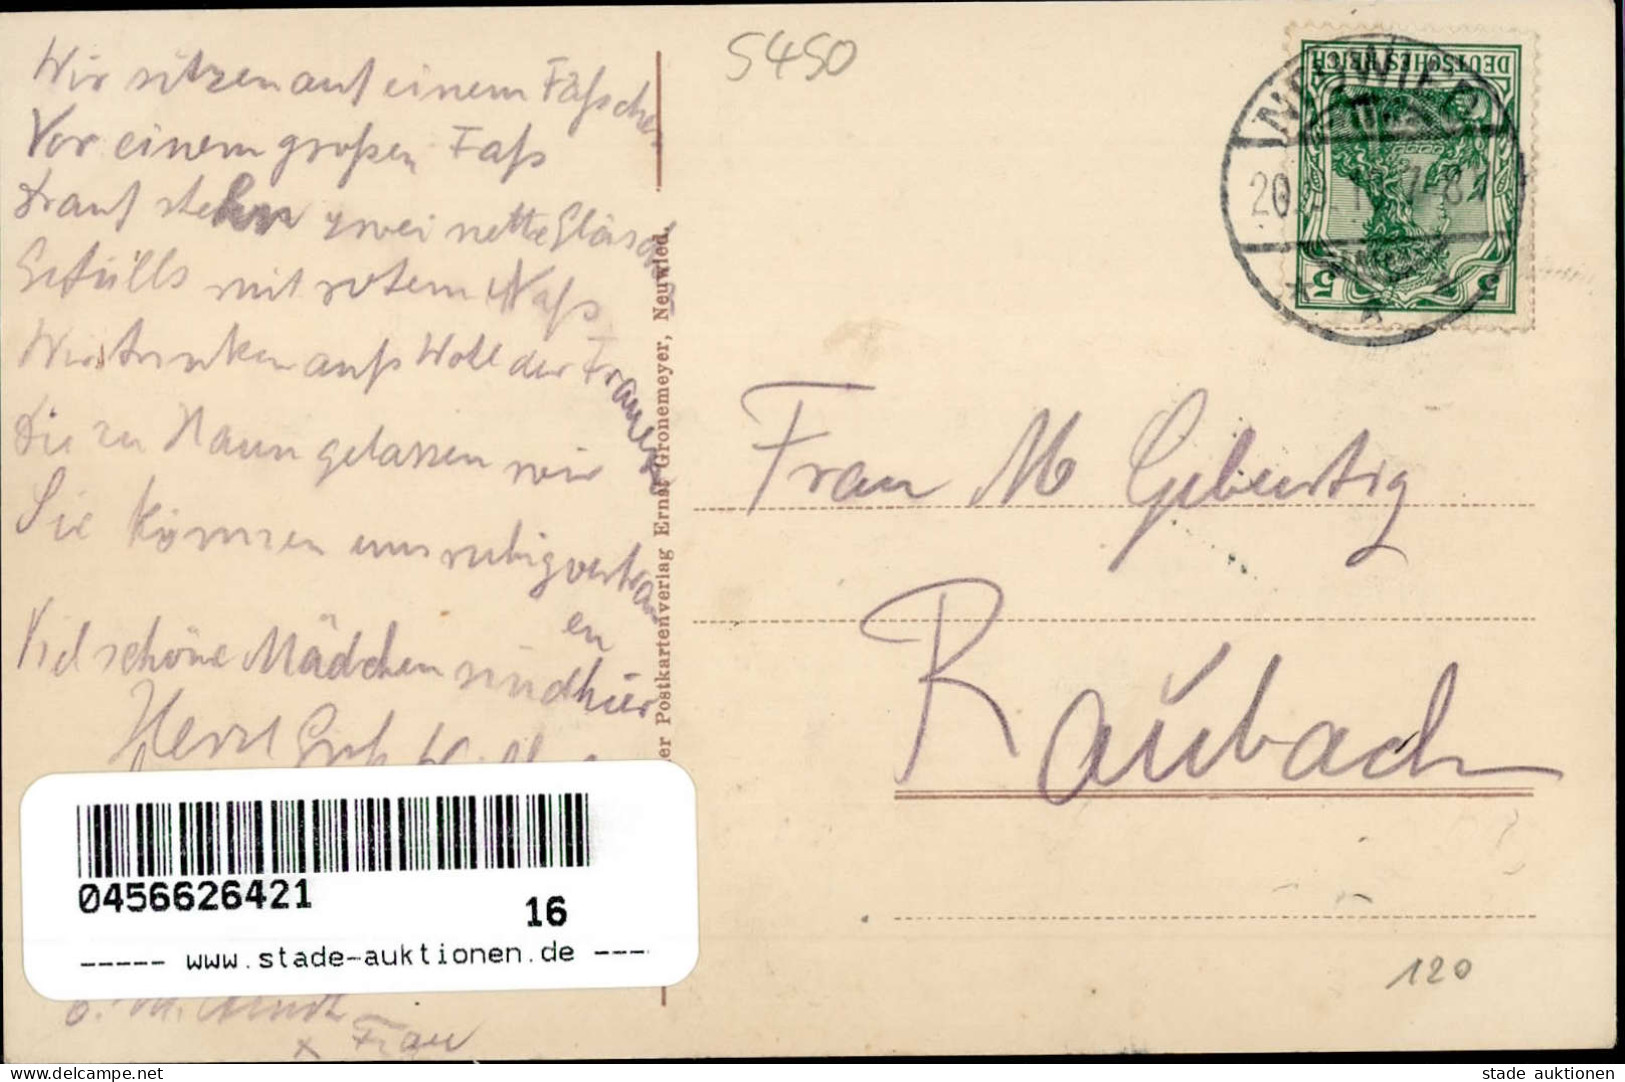 Wir sitzen auf einem Fäßchen
Vor einem großen Faß
Drauf stehn zwei nette Gläser
Gefülls mit rotem Naß
Wir trinken aufs Woll der Frauen
Die zu Haun gelassen wir
Sie können uns ruhig vertrau
en
Viel schöne Mädchen sind hier
Herzl
M.
x Frau
er Postkartenverlag Ernst Gronemeyer, Neuwied.
5450
DEUTSCHES REICH
5 5
NEUWIED
20. 7-8
Frau M Gebertig
Raubach
120
0456626421
16
----- www.stade-auktionen.de ----
www.delcampe.net
stade auktionen